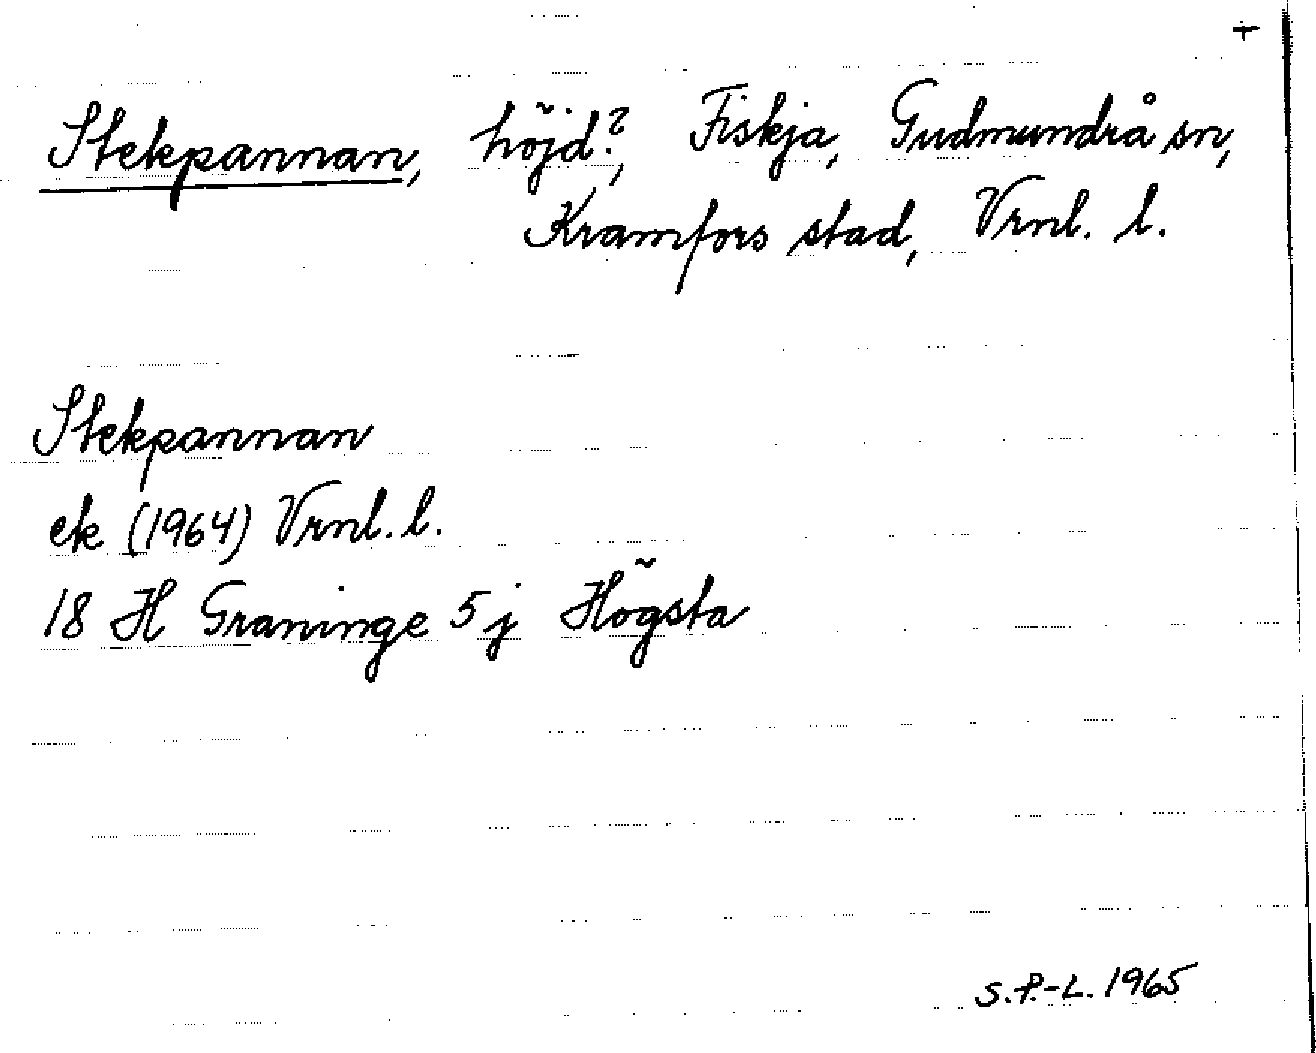 +
Stekpannan, höjd?, Fiskja, Gudmundrå sn,
Kramfors stad, Vrnl. l.
Stekpannan
ek (1964) Vrnl. l.
18 H Graninge 5 j Högsta
S.P.-L. 1965